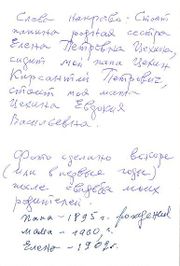 Слева направо: Стоит
папина родная сестра
Елена Петровна Цехина,
сидит мой папа Цехин
Кирсантий Петрович,
стоит моя мама
Цехина Евдокия
Васильевна.
Фото сделано вскоре
(или в первые годы)
после свадьбы моих
родителей.
Папа - 1895 г. рождения
мама - 1900 г.
Елена - 1902 г.